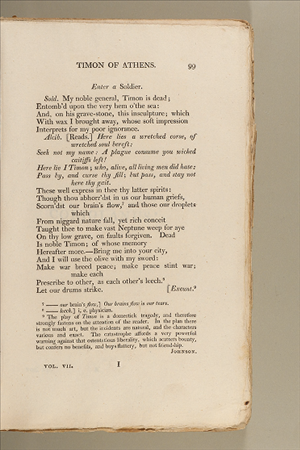 TIMON OF ATHENS. 99
Enter a Soldier.
Sold. My noble general, Timon is dead;
Entomb'd upon the very hem o'the sea:
And, on his grave-stone, this insculpture; which
With wax I brought away, whose soft impression
Interprets for my poor ignorance.
Alcib. [Reads.] Here lies a wretched corse, of
wretched soul bereft:
Seek not my name: A plague consume you wicked
caitiffs left!
Here lie I Timon; who, alive, all living men did hate:
Pass by, and curse thy fill; but pass, and stay not
here thy gait.
These well express in thee thy latter spirits:
Though thou abhorr'dst in us our human griefs,
Scorn'dst our brain's flow,¹ and those our droplets
which
From niggard nature fall, yet rich conceit
Taught thee to make vast Neptune weep for aye
On thy low grave, on faults forgiven. Dead
Is noble Timon; of whose memory
Hereafter more.—Bring me into your city,
And I will use the olive with my sword:
Make war breed peace; make peace stint war;
make each
Prescribe to other, as each other's leech.²
Let our drums strike. [Exeunt.³
¹ —— our brain's flow,] Our brain's flow is our tears.
² —— leech.] i. e. physician.
³ The play of Timon is a domestick tragedy, and therefore
strongly fastens on the attention of the reader. In the plan there
is not much art, but the incidents are natural, and the characters
various and exact. The catastrophe affords a very powerful
warning against that ostentatious liberality, which scatters bounty,
but confers no benefits, and buys flattery, but not friendship.
JOHNSON.
VOL. VII. I